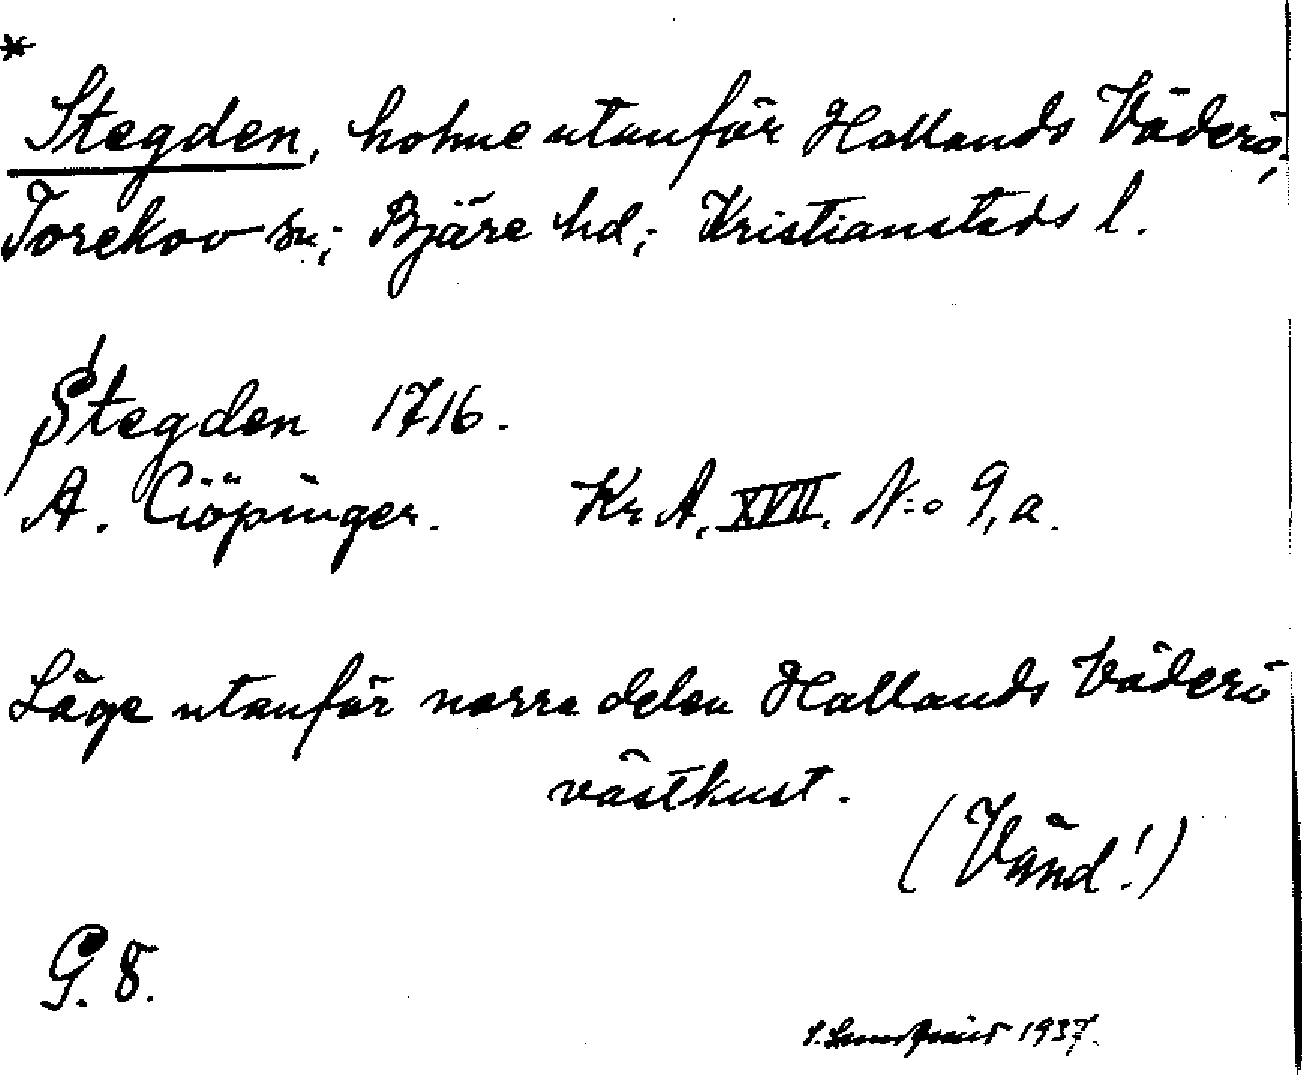 *
Stegden, holme utanför Hallands Väderö,
Torekov sn; Bjäre hd; Kristianstads l.
Stegden 1716.
A. Ciöpinger. Kr A. XVII. N:o 9, a.
Läge utanför norra delen Hallands Väderö
västkust.
(Vänd!)
G. 8.
1937.